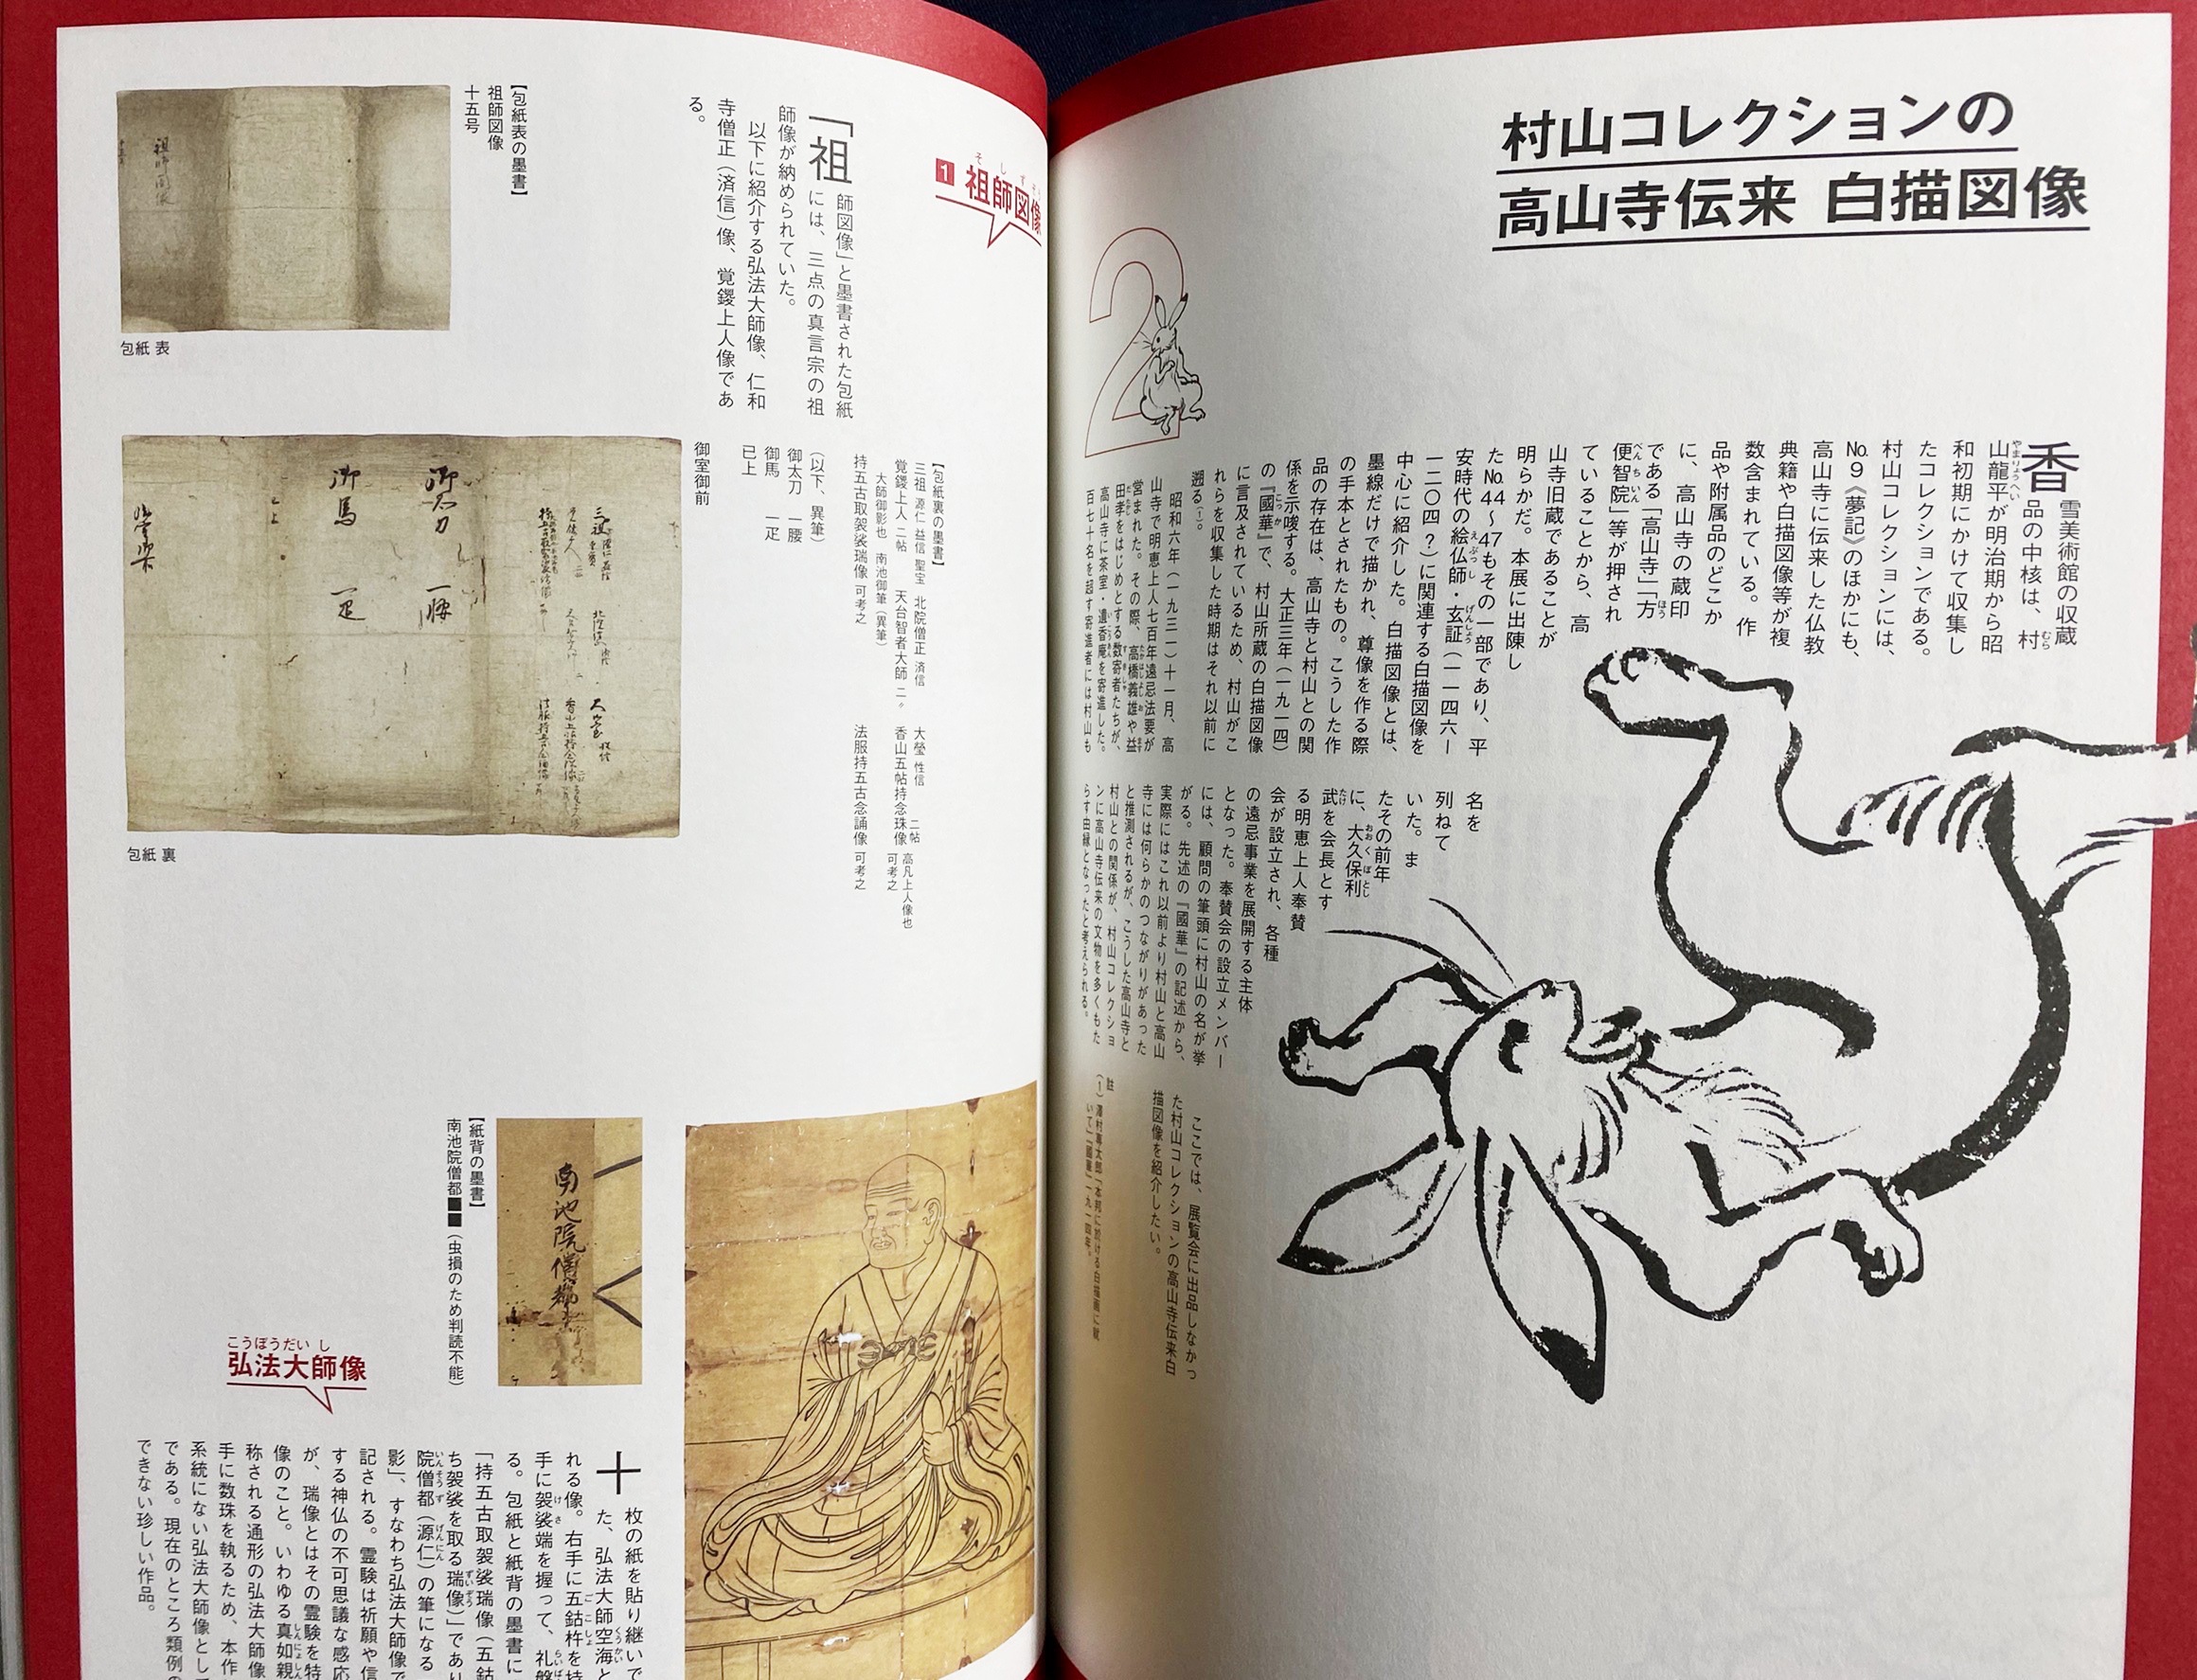 村山コレクションの
高山寺伝来 白描図像
2
香雪美術館の収蔵
品の中核は、村
山龍平が明治期から昭
和初期にかけて収集し
たコレクションである。
村山コレクションには、
No.9《夢記》のほかにも、
高山寺に伝来した仏教
典籍や白描図像等が複
数含まれている。作
品や附属品のどこか
に、高山寺の蔵印
である「高山寺」「方
便智院」等が押され
ていることから、高
山寺旧蔵であることが
明らかだ。本展に出陳し
たNo.44～47もその一部であり、平
安時代の絵仏師・玄証（一一四六ー
一二〇四？）に関連する白描図像を
中心に紹介した。白描図像とは、
墨線だけで描かれ、尊像を作る際
の手本とされたもの。こうした作
品の存在は、高山寺と村山との関
係を示唆する。大正三年（一九一四）
の『國華』で、村山所蔵の白描図像
に言及されているため、村山がこ
れらを収集した時期はそれ以前に
遡る（1）。
昭和六年（一九三一）十一月、高
山寺で明恵上人七百年遠忌法要が
営まれた。その際、高橋義雄や益
田孝をはじめとする数寄者たちが、
高山寺に茶室・遺香庵を寄進した。
百七十名を超す寄進者には村山も
名を
列ねて
いた。ま
たその前年
に、大久保利
武を会長とす
る明恵上人奉賛
会が設立され、各種
の遠忌事業を展開する主体
となった。奉賛会の設立メンバー
には、顧問の筆頭に村山の名が挙
がる。先述の『國華』の記述から、
実際にはこれ以前より村山と高山
寺には何らかのつながりがあった
と推測されるが、こうした高山寺と
村山との関係が、村山コレクショ
ンに高山寺伝来の文物を多くもた
らす由縁となったと考えられる。
ここでは、展覧会に出品しなかっ
た村山コレクションの高山寺伝来白
描図像を紹介したい。
註
（1）澤村專太郎「本邦に於ける白描画に就
いて」『國華』一九一四年。
1 祖師図像
「祖師図像」と墨書された包紙
には、三点の真言宗の祖
師像が納められていた。
以下に紹介する弘法大師像、仁和
寺僧正（済信）像、覚鑁上人像であ
る。
【包紙表の墨書】
祖師図像
十五号
包紙 表
【包紙裏の墨書】
三祖 源仁 益信 聖宝 北院僧正 済信 大瑩 性信
覚鑁上人 二帖 天台智者大師 二〃 香山五帖持念珠像 二帖 高凡上人像也 可考之
大師御影也 南池御筆（異筆）
持五古取袈裟瑞像 可考之 法服持五古念誦像 可考之
（以下、異筆）
御太刀 一腰
御馬 一疋
已上
御室御前
包紙 裏
【紙背の墨書】
南池院僧都■■（虫損のため判読不能）
弘法大師像
十枚の紙を貼り継いで
た、弘法大師空海と
れる像。右手に五鈷杵を持
手に袈裟端を握って、礼盤
る。包紙と紙背の墨書に
「持五古取袈裟瑞像（五鈷
ち袈裟を取る瑞像）」であり
院僧都（源仁）の筆になる
影」、すなわち弘法大師像で
記される。霊験は祈願や信
する神仏の不可思議な感応
が、瑞像とはその霊験を特
像のこと。いわゆる真如親
称される通形の弘法大師像
手に数珠を執るため、本作
系統にない弘法大師像とし
である。現在のところ類例の
できない珍しい作品。